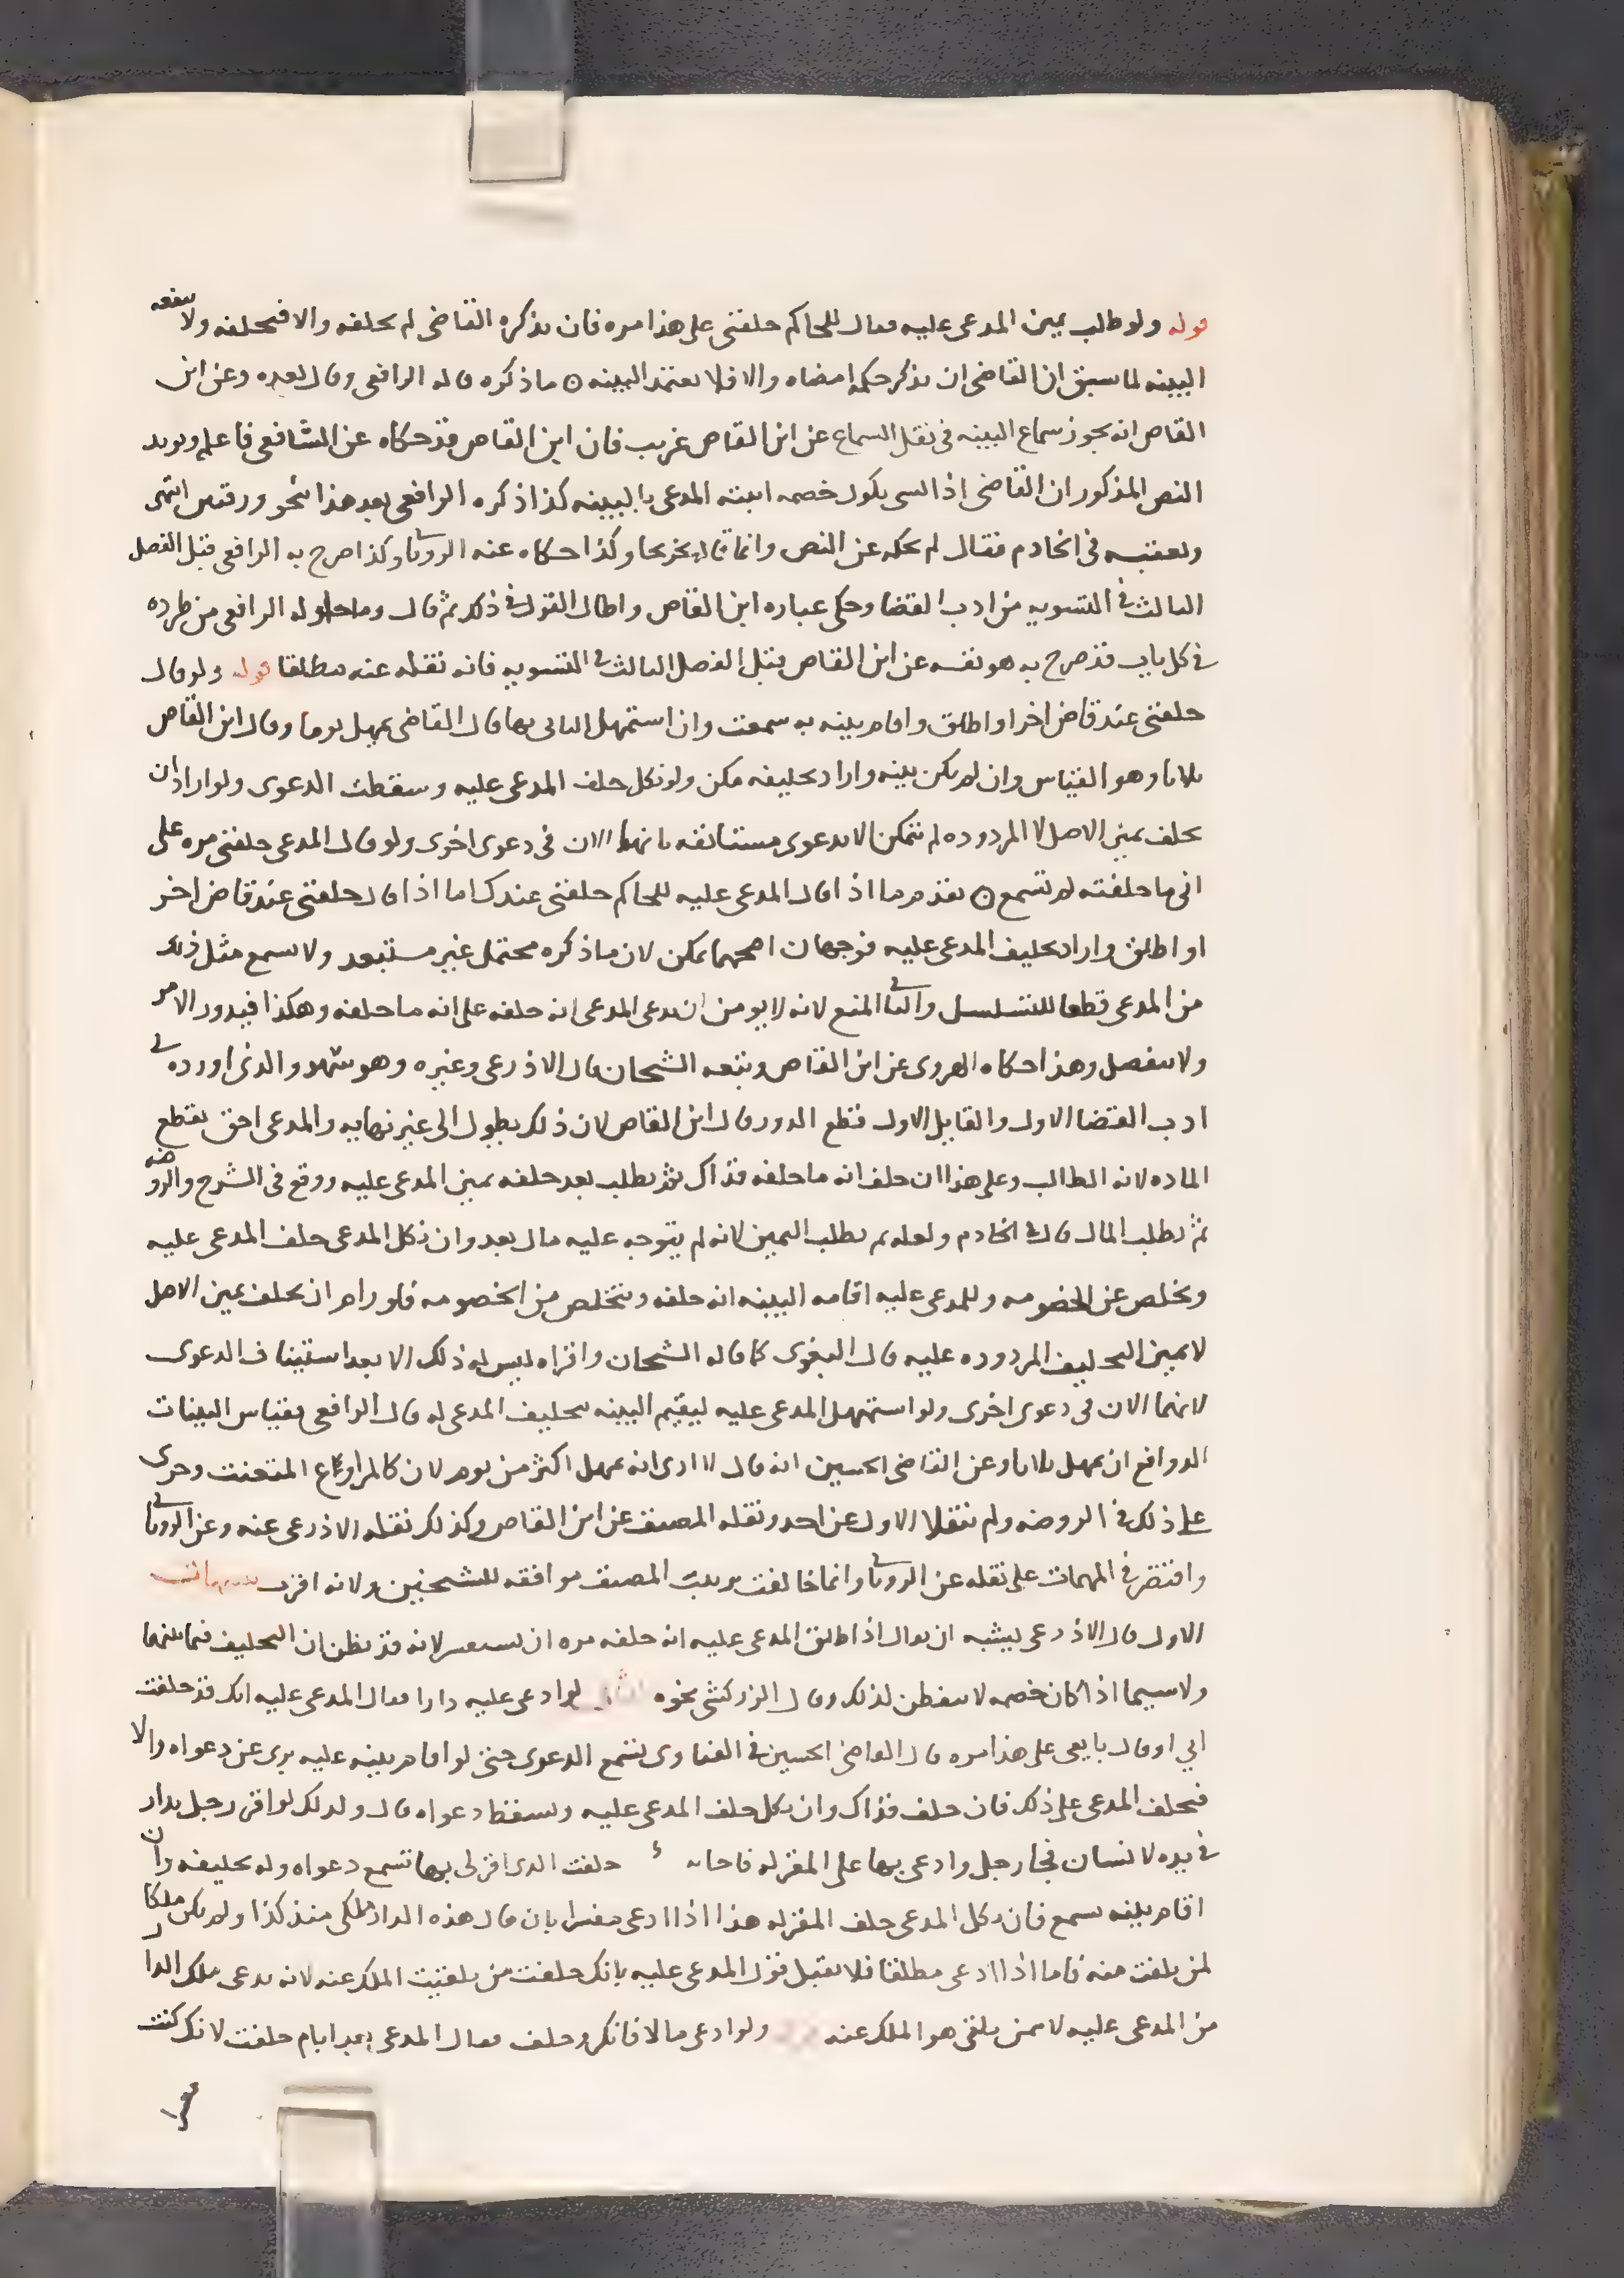 قوله ولو طلب يمين المدعى عليه فقال للحاكم حلفنى على هذا مره فان تذكره القاضى لم يحلفه والا فيحلفه ولا ينفعه
البينه لما سبق ان القاضى ان تذكر حكمه امضاه والا فلا يعتمد البينه ما ذكره قاله الرافعى وقال بعده وعن ابن
القاص انه يجوز سماع البينه فى نقل السماع عن ابن القاص غريب فان ابن القاص قد حكاه عن الشافعى فاعلم ويويد
النص المذكور ان القاضى اذا نسى نكول خصمه اثبته المدعى بالبينه كذا ذكره الرافعى بعد هذا بنحو ورقتين انتهى
وتعقبه فى الخادم فقال لم يحكه عن النص وانما قاله تخريجا وكذا حكاه عنه الرويانى وكذا صرح به الرافعى قبل الفصل
الثالث فى التسويه من ادب القضا وحكى عباره ابن القاص واطال القول فى ذلك ثم قال وما حاوله الرافعى من طرده
فى كل باب قد صرح به هو نفسه عن ابن القاص قبل الفصل الثالث فى التسويه فانه نقله عنه مطلقا قوله ولو قال
حلفنى عند قاض اخر او اطلق واقام بينه به سمعت وان استمهل لياتى بها قال القاضى يمهل يوما وقال ابن القاص
ثلاثا وهو القياس وان لم يكن بينه واراد تحليفه مكن ولو نكل حلف المدعى عليه وسقطت الدعوى ولو اراد ان
يحلف يمين الاصل لا المردوده لم يتمكن الا بدعوى مستانفه الان فى دعوى اخرى ولو قال المدعى حلفنى مره على
انى ما حلفته لم تسمع تقدم ما اذا قال المدعى عليه للحاكم حلفنى عندك اما اذا قال حلفنى عند قاض اخر
او اطلق واراد تحليف المدعى عليه فوجهان اصحهما يمكن لان ما ذكره محتمل غير مستبعد ولا يسمع مثل ذلك
من المدعى قطعا للتسلسل والثانى المنع لانه لا يومن ان يدعى المدعى انه حلفه على انه ما حلفه وهكذا فيدور الامر
ولا ينفصل وهذا حكاه الهروى عن ابن القاص وتبعه الشيخان قال الاذرعى وغيره وهو سهو والذى اورده فى
ادب القضا الاول والقايل الاول قطع الدور قال ابن القاص لان ذلك يطول الى غير نهايه والمدعى احق بقطع
الماده لانه الطالب وعلى هذا ان حلف انه ما حلفه فذاك ثم يطلب بعد حلفه يمين المدعى عليه ووقع فى الشرح والروضه
ثم يطلب المال قال فى الخادم ولعله ثم يطلب اليمين لانه لم يتوجه عليه مال بعد وان نكل المدعى حلف المدعى عليه
وتخلص عن الخصومه وللمدعى عليه اقامه البينه انه حلفه ويتخلص من الخصومه فلو رام ان يحلف يمين الاصل
لا يمين التحليف المردوده عليه قال البغوى كما قاله الشيخان واقراه ليس له ذلك الا بعد استيناف الدعوى
لانهما الان فى دعوى اخرى ولو استمهل المدعى عليه ليقيم البينه بتحليف المدعى له قال الرافعى فقياس البينات
الدوافع ان يمهل ثلاثا وعن القاضى الحسين انه قال لا ارى انه يمهل اكثر من يوم لانه كالمتعنت وجرى
على ذلك فى الروضه ولم ينقلا الاول عن احد ونقله المصنف عن ابن القاص وكذلك نقله الاذرعى عنه وعن الرويانى
واقتصر فى المهمات على نقله عن الرويانى وانما خالفت ترتيب المصنف موافقه للشيخين ولانه اقرب تنبيهات
الاول قال الاذرعى يشبه ان يقال اذا اطلق المدعى عليه انه حلفه مره ان يستفسر لانه قد يظن ان التحليف فيما بينهما
ولا سيما اذا كان خصمه لا يتفطن لذلك وقال الزركشى نحوه لو ادعى عليه دارا فقال المدعى عليه انك قد حلفت
ابى او قال بايعى على هذا مره قال القاضى الحسين فى الفتاوى تسمع الدعوى حتى لو اقام بينه عليه برى عن دعواه والا
فيحلف المدعى على ذلك فان حلف فذاك وان نكل حلف المدعى عليه وسقط دعواه قال وكذلك لو اقر رجل بدار
فى يده لانسان فجا رجل وادعى بها على المقر له فاجابه حلفت الذى اقر لى بها تسمع دعواه وله تحليفه وان
اقام بينه سمع فان نكل المدعى حلف المقر له هذا اذا ادعى مفسرا بان قال هذه الدار ملكى منذ كذا ولم يكن ملكا
لمن تلقيت منه فاما اذا ادعى مطلقا فلا يقبل قول المدعى عليه بانك حلفت من تلقيت الملك عنه لانه يدعى ملك الدار
من المدعى عليه لا ممن تلقى هو الملك عنه ولو ادعى مالا فانكر وحلف فقال المدعى بعد ايام حلفت لانك كنت
معسرا